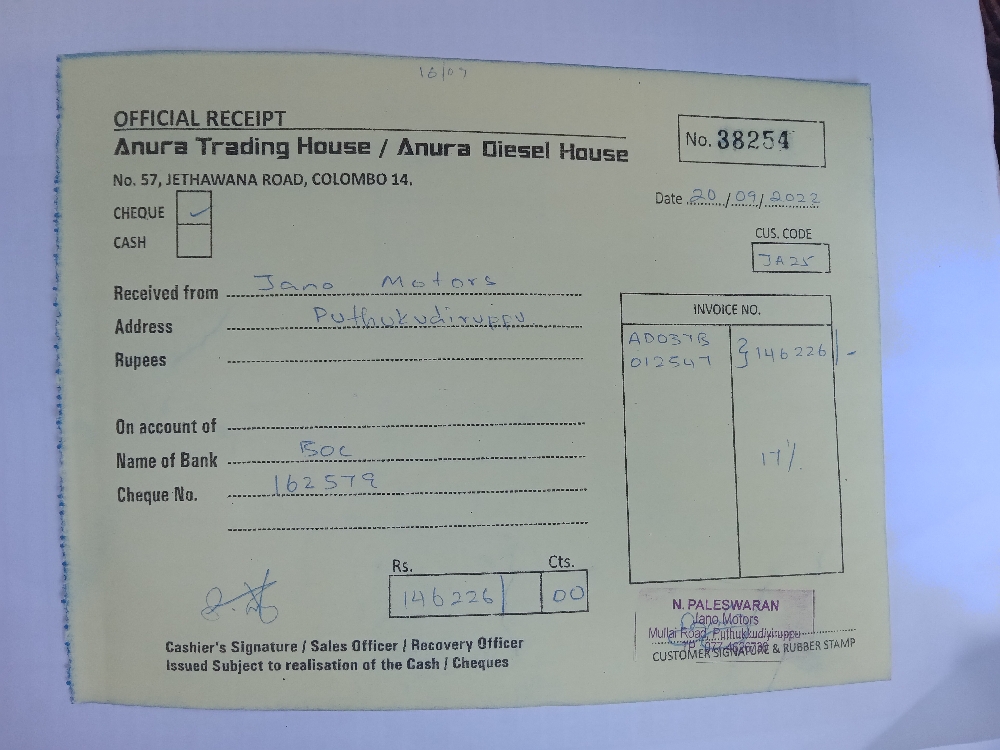 16/09
OFFICIAL RECEIPT
Anura Trading House / Anura Diesel House
No. 38254
No. 57, JETHAWANA ROAD, COLOMBO 14.
Date 20/09/2022
CHEQUE ✓
CASH
CUS. CODE
JA25
Received from Jano Motors
Address Puthukudiruppu
Rupees
INVOICE NO.
AD037B
012547 } 146226/-
On account of
Name of Bank BOC
17%
Cheque No. 162579
Rs. Cts.
146226/ 00
N. PALESWARAN
Jano Motors
Mullai Road, Puthukkudiyiruppu
CUSTOMER SIGNATURE & RUBBER STAMP
Cashier's Signature / Sales Officer / Recovery Officer
Issued Subject to realisation of the Cash / Cheques